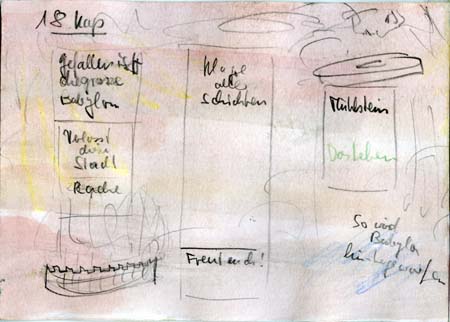 18 Kap
Gefallen ist
die grosse
Babylon
Verlasst
Stadt
Rache
Klage
aller
Schichten
Freut euch!
Mühlstein
Das Leben
So wird
Babylon